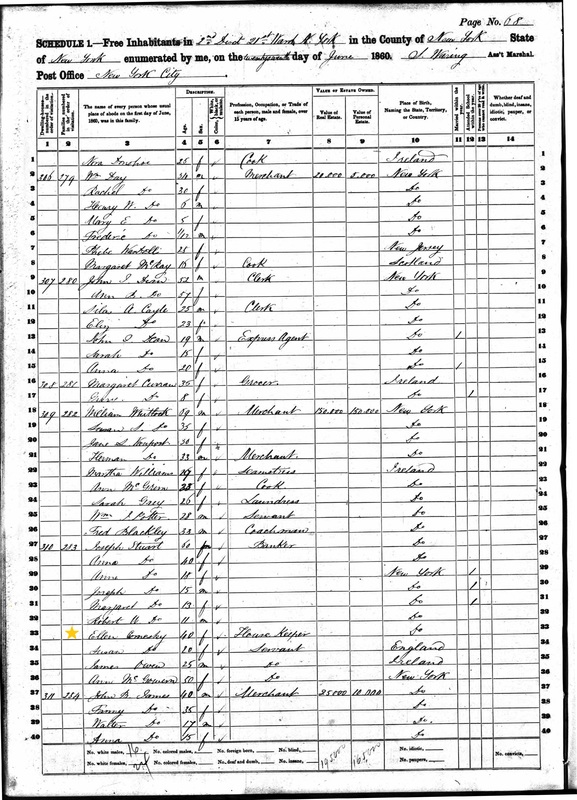 Page No. 68
SCHEDULE 1.—Free Inhabitants in 2nd Dist 21st Ward N. York in the County of New York State
of New York enumerated by me, on the day of June 1860. S. Wearing Ass't Marshal.
Post Office New York City
DESCRIPTION. VALUE OF ESTATE OWNED.
Dwelling-houses numbered in the order of visitation. Families numbered in the order of visitation. The name of every person whose usual place of abode on the first day of June, 1860, was in this family. Age. Sex. Profession, Occupation, or Trade of each person, male and female, over 15 years of age. Value of Real Estate. Value of Personal Estate. Place of Birth, Naming the State, Territory, or Country. Married within the year. Attended School within the year. Whether deaf and dumb, blind, insane, idiotic, pauper, or convict.
1 2 3 4 5 6 7 8 9 10 11 12 13 14
1 Nora 25 f Cook Ireland 1
2 306 279 Wm Day 34 m Merchant 20,000 5,000 New York 2
3 Rachel Do 30 f Do 3
4 Henry W. Do 6 m Do 4
5 Mary E Do 5 f Do 5
6 Frederic Do m Do 6
7 Phebe 28 f New Jersey 7
8 Margaret McKay 18 f Cook Scotland 8
9 307 280 John J. Dean 53 m Clerk New York 9
10 Ann Do 57 f Do 10
11 Silas A. Cayle 25 m Clerk Do 11
12 Eliz Do 23 f Do 12
13 John J. Dean 19 m Express Agent Do 1 13
14 Sarah Do 18 f Do 14
15 Anna Do 20 f Do 1 15
16 308 281 Margaret Curran 35 f Grocer Ireland 16
17 Do 8 f Do 1 17
18 309 282 William Whitlock 69 m Merchant 150,000 150,000 New York 18
19 Susan S. Do 35 f Do 19
20 Jane S. Newport 30 f Do 20
21 Herman Do 33 m Merchant Do 21
22 Martha Williams f Seamstress Ireland 22
23 Ann McGreen 28 f Cook Do 23
24 Sarah Grey 26 f Laundress Do 24
25 Wm J. Potter 28 m Servant Do 25
26 Fred Blackley 33 m Coachman Do 26
27 310 283 Joseph Stuart 60 m Banker Do 27
28 Anna Do 40 f Do 28
29 Anne Do 18 f New York 1 29
30 Joseph Do 15 m Do 1 30
31 Margaret Do 13 f Do 1 31
32 Robert W. Do 11 m Do 32
33 Ellen 40 f House Keeper Do 33
34 Susan Do 20 f Servant England 34
35 James Owen 25 m Do Ireland 35
36 Ann McGovern 50 f Do New York 36
37 311 284 John B. James 40 m Merchant 25000 10,000 Do 37
38 Fanny Do 35 f Do 38
39 Walter Do 17 m Do 39
40 Anna Do 15 f Do 40
No. white males, 16 No. colored males, No. foreign born, No. blind, No. idiotic, No. convicts,
No. white females, 24 No. colored females, No. deaf and dumb, No. insane, 195,000 165,000 No. paupers,